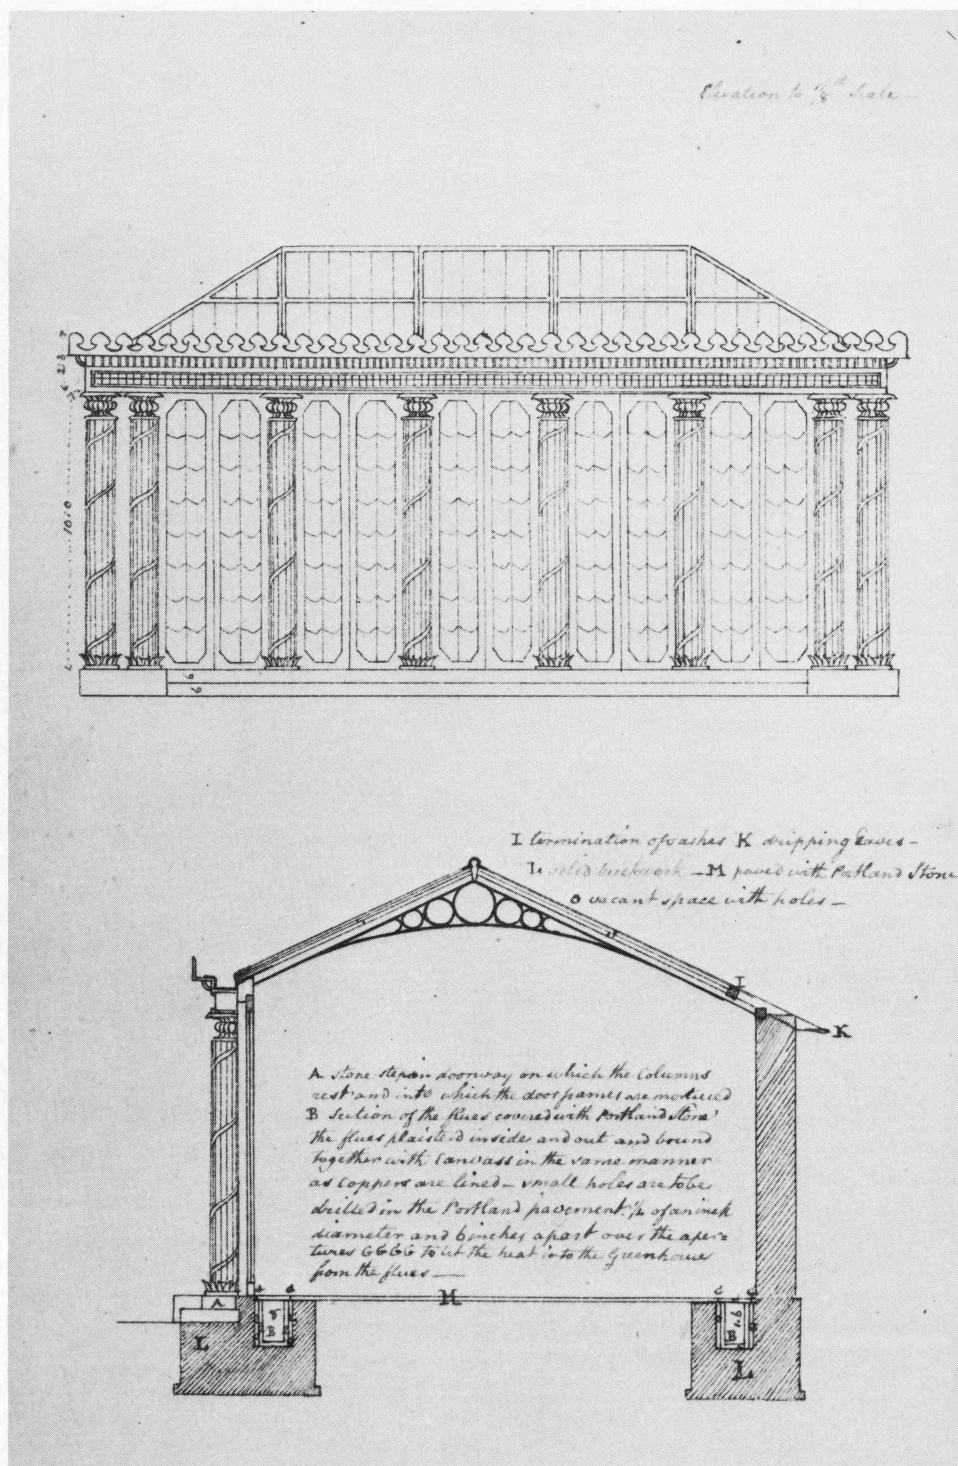 Elevation to 1/8th Scale —
7
2.8
10.0
6
6
I termination of sashes K dripping Eaves —
L solid brickwork — M paved with Portland Stone
o vacant space with holes —
I
K
A stone step in doorway on which the Columns
rest and into which the door frames are morticed
B section of the flues covered with Portland Stone
the flues plaister'd inside and out and bound
together with Canvass in the same manner
as Coppers are lined — small holes are to be
drilled in the Portland pavement 1/2 of an inch
diameter and 6 inches apart over the aper=
tures GGGG to let the heat into the Greenhouse
from the flues —
M
A
B
B
L
L